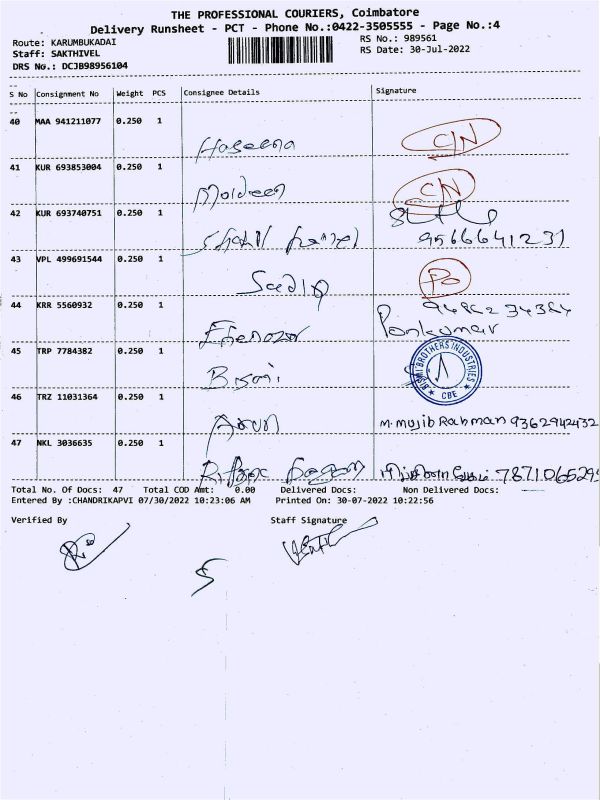 THE PROFESSIONAL COURIERS, Coimbatore
Delivery Runsheet - PCT - Phone No.:0422-3505555 - Page No.:4
Route: KARUMBUKADAI
RS No.: 989561
Staff: SAKTHIVEL
RS Date: 30-Jul-2022
DRS No.: DCJB98956104
S No Consignment No Weight PCS Consignee Details Signature
40 MAA 941211077 0.250 1
Haseena C/N
41 KUR 693853004 0.250 1
Moideen C/N
42 KUR 693740751 0.250 1
9566641231
43 VPL 499691544 0.250 1
Sadiq Po
44 KRR 5560932 0.250 1
Ponkumar
45 TRP 7784382 0.250 1
Bismi BISMI BROTHERS INDUSTRIES CBE
46 TRZ 11031364 0.250 1
M. Mujib Rahman 9362942432
47 NKL 3036635 0.250 1
Total No. Of Docs: 47 Total COD Amt: 0.00 Delivered Docs: Non Delivered Docs:
Entered By :CHANDRIKAPVI 07/30/2022 10:23:06 AM Printed On: 30-07-2022 10:22:56
Verified By Staff Signature